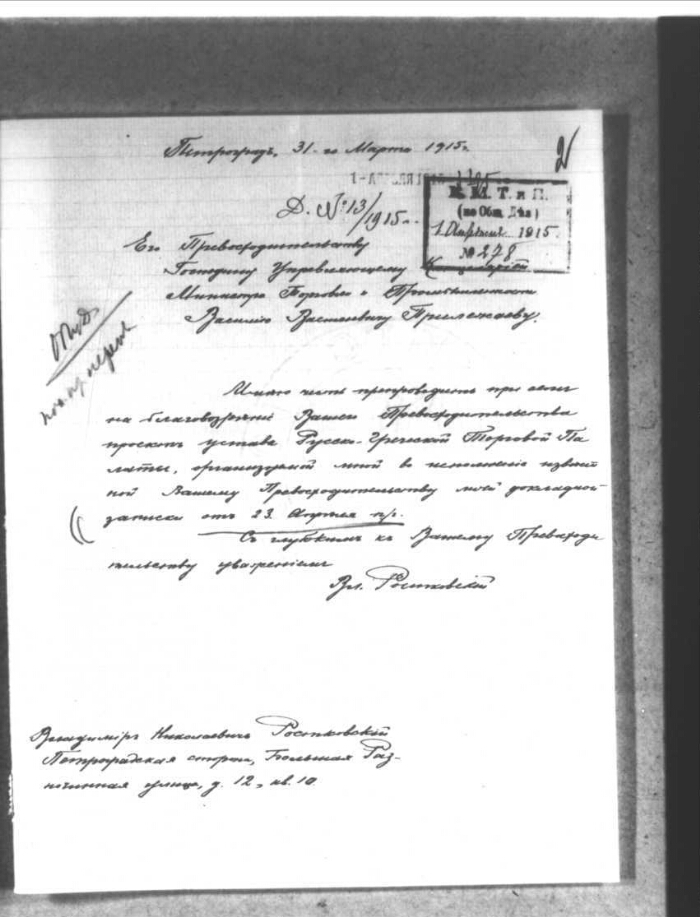 Петроградъ, 31-го Марта 1915 г.
2
Д. № 13/1915 г.
К. М. Т. и П.
(по Общ. Дѣл.)
1 Апрѣля 1915.
№ 278
Его Превосходительству
Господину Управляющему Канцелярiей
Министра Торговли и Промышленности
Василiю Васильевичу Прилежаеву.
Имѣю честь препроводить при семъ
на благовоззрѣнiе Вашего Превосходительства
проектъ устава Русско-Греческой Торговой Па
латы, организуемой мной во исполненiе извѣст
ной Вашему Превосходительству моей докладной
записки отъ 23 Апрѣля п/г.
Съ глубокимъ къ Вашему Превосходи
тельству уваженiемъ
Вл. Ростковскiй
Владимiръ Николаевичъ Ростковскiй
Петроградская сторона, Большая Раз-
ночинная улица, д. 12, кв. 10